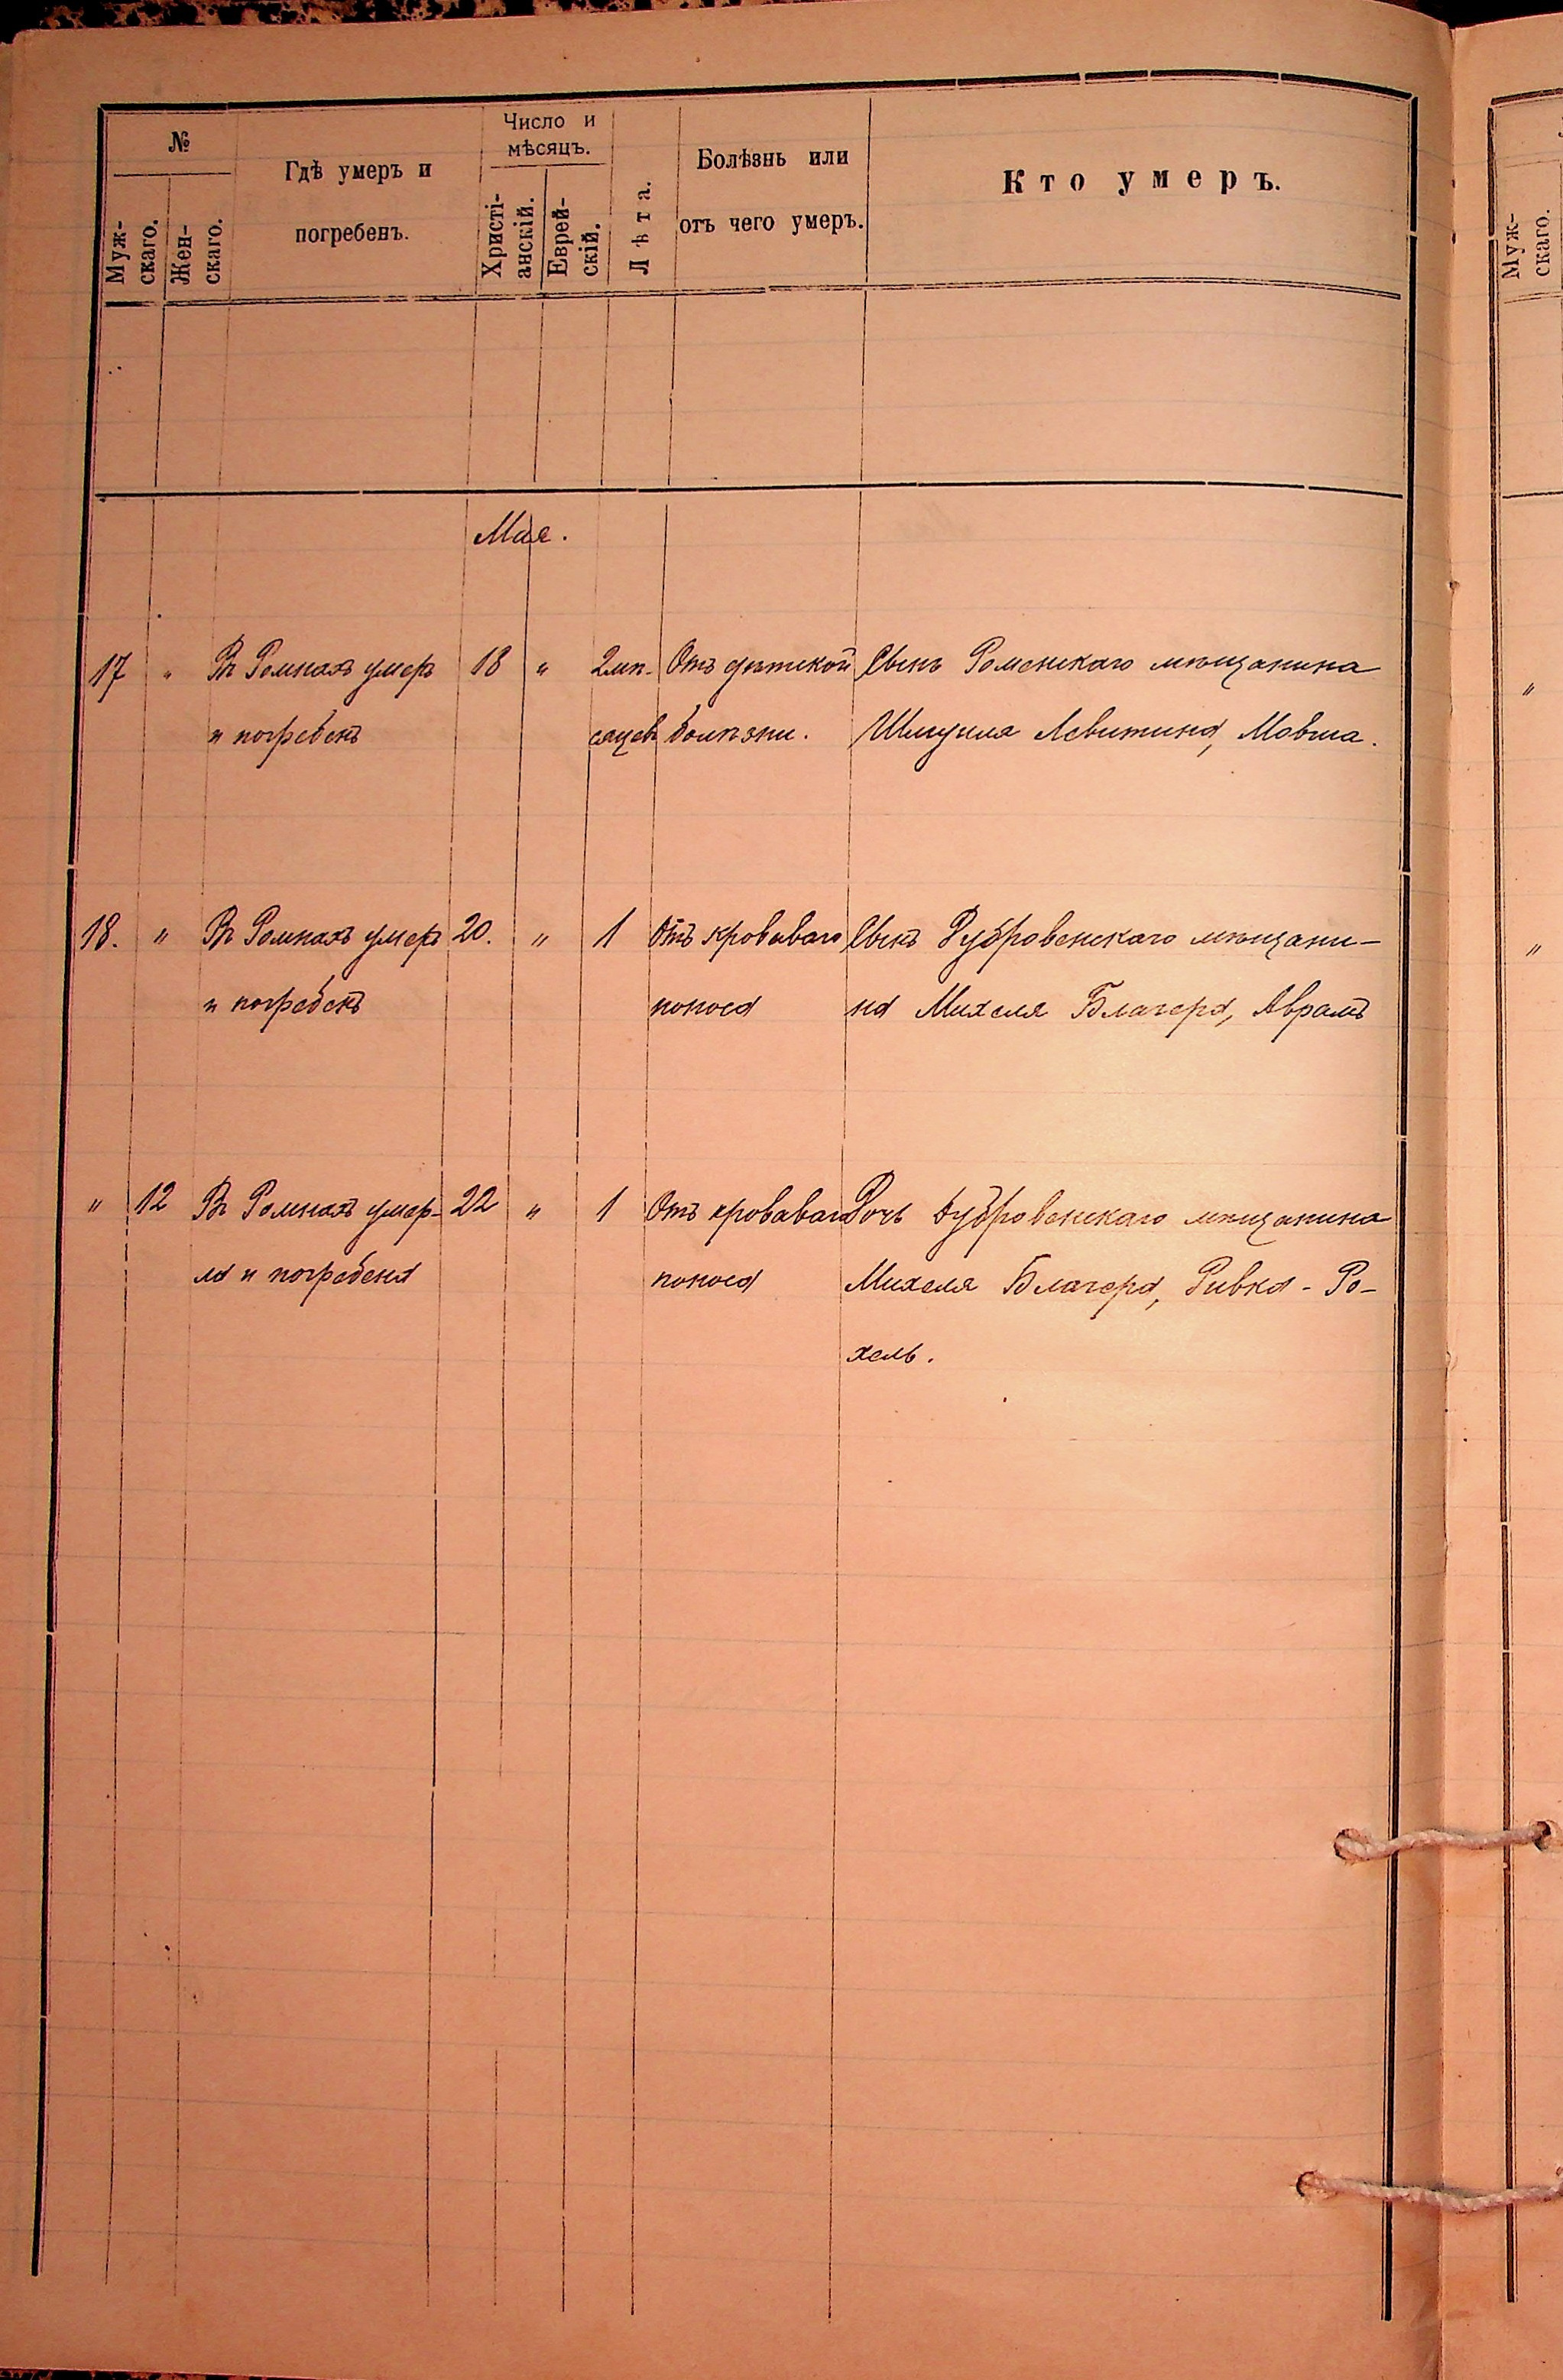 №
Муж-
скаго.
Жен-
скаго.
Гдѣ умеръ и
погребенъ.
Число и
мѣсяцъ.
Христі-
анскій.
Еврей-
скій.
Лѣта.
Болѣзнь или
отъ чего умеръ.
Кто умеръ.
Мая.
17 " Въ Ромнахъ умеръ 18 " 2 мѣ- Отъ дѣтской Сынъ Роменскаго мѣщанина
и погребенъ сяцевъ болѣзни. Шмуиля Левитина, Мовша.
18. " Въ Ромнахъ умеръ 20. " 1 Отъ кроваваго Сынъ Дубровенскаго мѣщани-
и погребенъ поноса на Михеля Благера, Аврамъ
" 12 Въ Ромнахъ умер- 22 " 1 Отъ кроваваго Дочь Дубровенскаго мѣщанина
ла и погребена поноса Михеля Благера, Ривка-Ро-
хель.
Муж-
скаго.
"
"